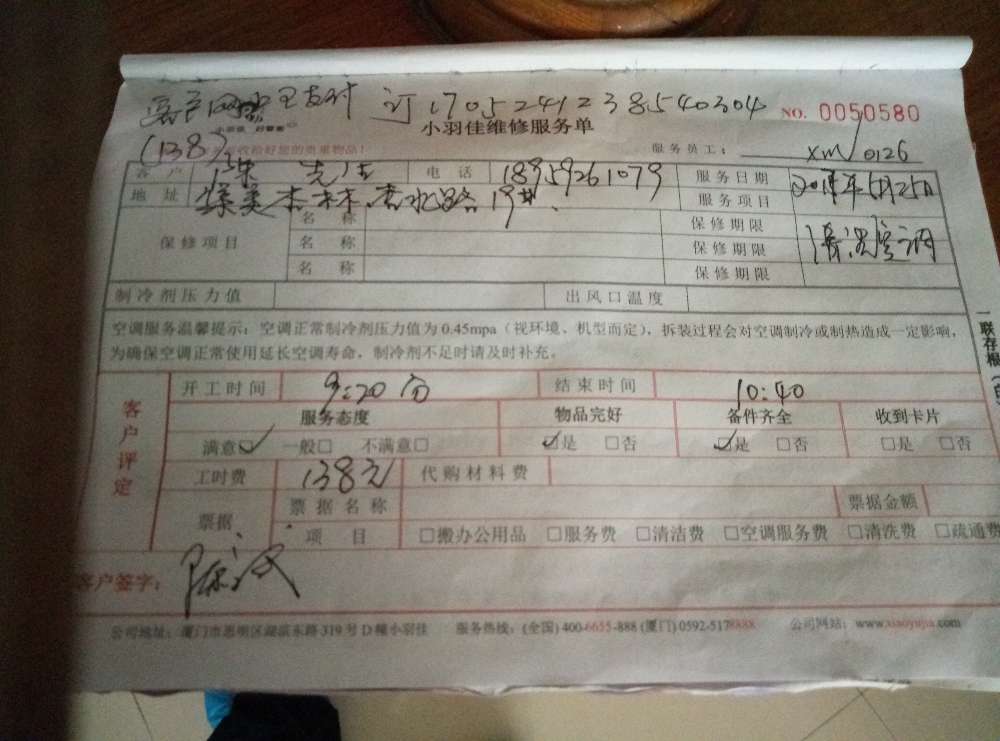 客户网上已支付 订1705241238540304
小羽佳 好管家
小羽佳维修服务单 NO. 0050580
(138)
收拾好您的贵重物品! 服务员工: xm/0126
客户 陈 先生 电话 18959261079 服务日期 2017年5月25日
地址 杏林 杏北路19# 服务项目 清洗空调
保修项目 名称 保修期限
名称 保修期限
名称 保修期限
制冷剂压力值 出风口温度
空调服务温馨提示:空调正常制冷剂压力值为0.45mpa(视环境、机型而定),拆装过程会对空调制冷或制热造成一定影响,
为确保空调正常使用延长空调寿命,制冷剂不足时请及时补充。
一联存根
客户评定
开工时间 9:20分 结束时间 10:40
服务态度 物品完好 备件齐全 收到卡片
满意☑ 一般□ 不满意□ ☑是 □否 ☑是 □否 □是 □否
工时费 138元 代购材料费
票据 票据名称 票据金额
项目 □搬办公用品 □服务费 □清洁费 □空调服务费 □清洗费 □疏通费
客户签字:
公司地址:厦门市思明区湖滨东路319号D幢小羽佳 服务热线:(全国)400-6655-888(厦门)0592-5178888 公司网站:www.xiaoyujia.com